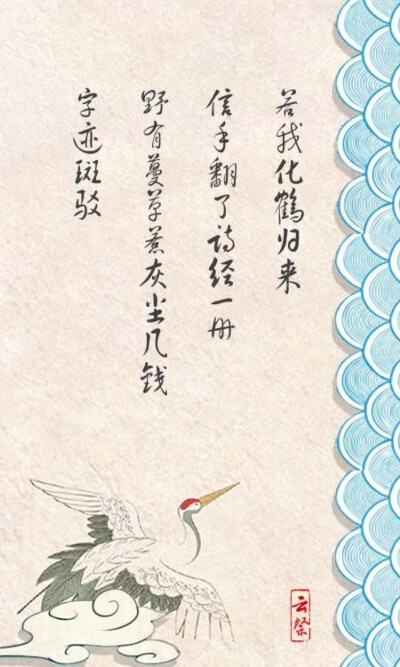 若我化鹤归来
信手翻了诗经一册
野有蔓草惹灰尘几钱
字迹斑驳
云祭